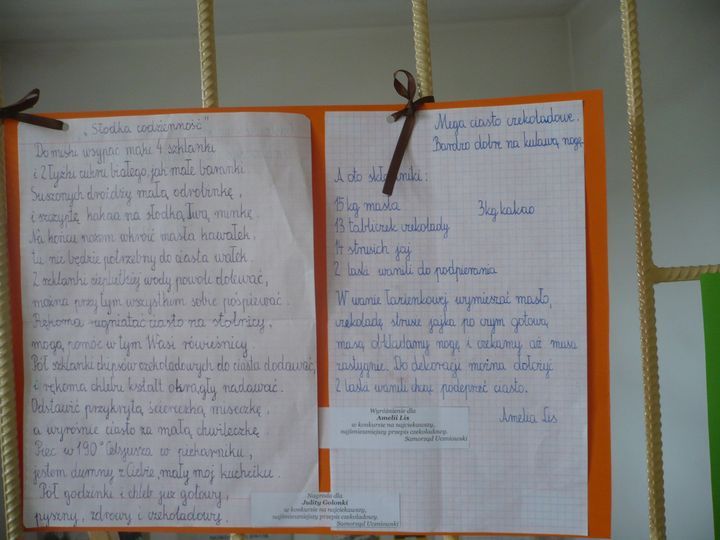 „Słodka codzienność"
Do miski wsypać mąki 4 szklanki
i 2 łyżki cukru białego, jak małe baranki.
Suszonych drożdży małą odrobinkę,
i szczyptę kakao na słodką Twą minkę.
Na końcu nożem wkroić masła kawałek,
tu nie będzie potrzebny do ciasta wałek.
2 szklanki cieplutkiej wody powoli dolewać,
można przy tym wszystkim sobie pośpiewać.
Rękoma ugniatać ciasto na stolnicy,
mogą pomóc w tym Wasi rówieśnicy.
Pół szklanki chipsów czekoladowych do ciasta dodawać,
i rękoma chlebu kształt okrągły nadawać.
Odstawić przykrytą ściereczką miseczkę,
a wyrośnie ciasto za małą chwileczkę.
Piec w 190° Celsjusza w piekarniku,
jestem dumny z Ciebie, mały mój kuchciku.
Pół godzinki i chleb już gotowy,
pyszny, zdrowy i czekoladowy.
Nagroda dla
Judyty Golonki
w konkursie na najciekawszy,
najśmieszniejszy przepis czekoladowy.
Samorząd Uczniowski
Mega ciasto czekoladowe.
Bardzo dobre na kulawą nogę
A oto składniki:
15 kg masła
3 kg kakao
13 tabliczek czekolady
14 strusich jaj
2 laski wanilii do podpierania
W wannie łazienkowej wymieszać masło,
czekoladę strusie jajka po czym gotową
masą okładamy nogę i czekamy aż masa
zastygnie. Do dekoracji można dołożyć
2 laski wanilii chcąc podeprzeć ciasto.
Amelia Lis
Wyróżnienie dla
Amelii Lis
w konkursie na najciekawszy,
najśmieszniejszy przepis czekoladowy.
Samorząd Uczniowski